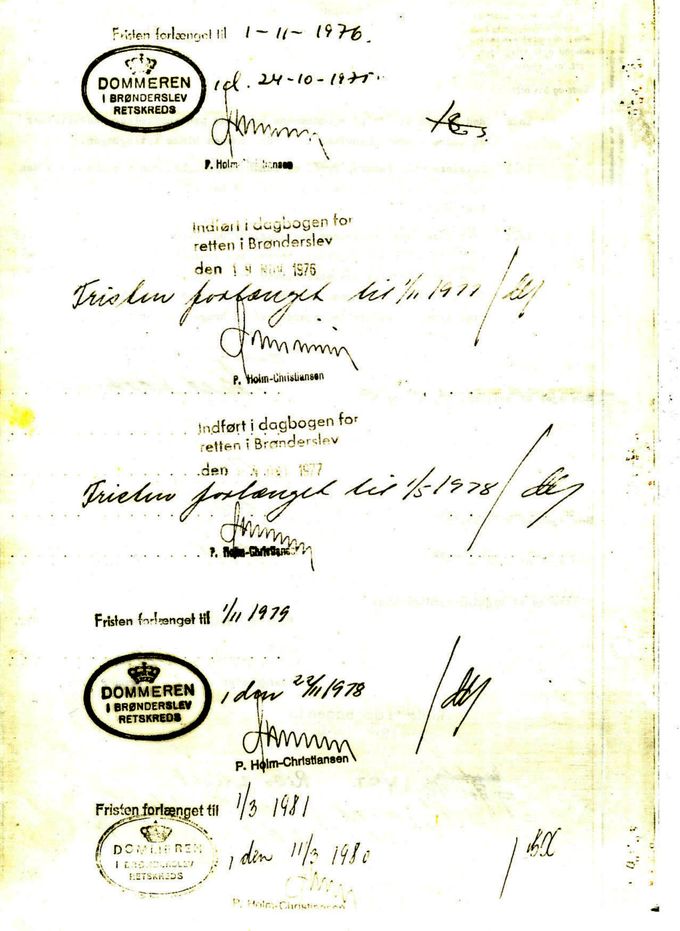 Fristen forlænget til 1-11-1976.
DOMMEREN
I BRØNDERSLEV
RETSKREDS
, d. 24-10-1975.
P. Holm-Christiansen
Indført i dagbogen for
retten i Brønderslev
den NOV. 1976
Fristen forlænget til 1/11 1977
P. Holm-Christiansen
Indført i dagbogen for
retten i Brønderslev
den 1977
Fristen forlænget til 1/5-1978
P. Holm-Christiansen
Fristen forlænget til 1/11 1979
DOMMEREN
I BRØNDERSLEV
RETSKREDS
, den 22/11 1978
P. Holm-Christiansen
Fristen forlænget til 1/3 1981
DOMMEREN
I BRØNDERSLEV
RETSKREDS
, den 11/3 1980
P. Holm-Christiansen